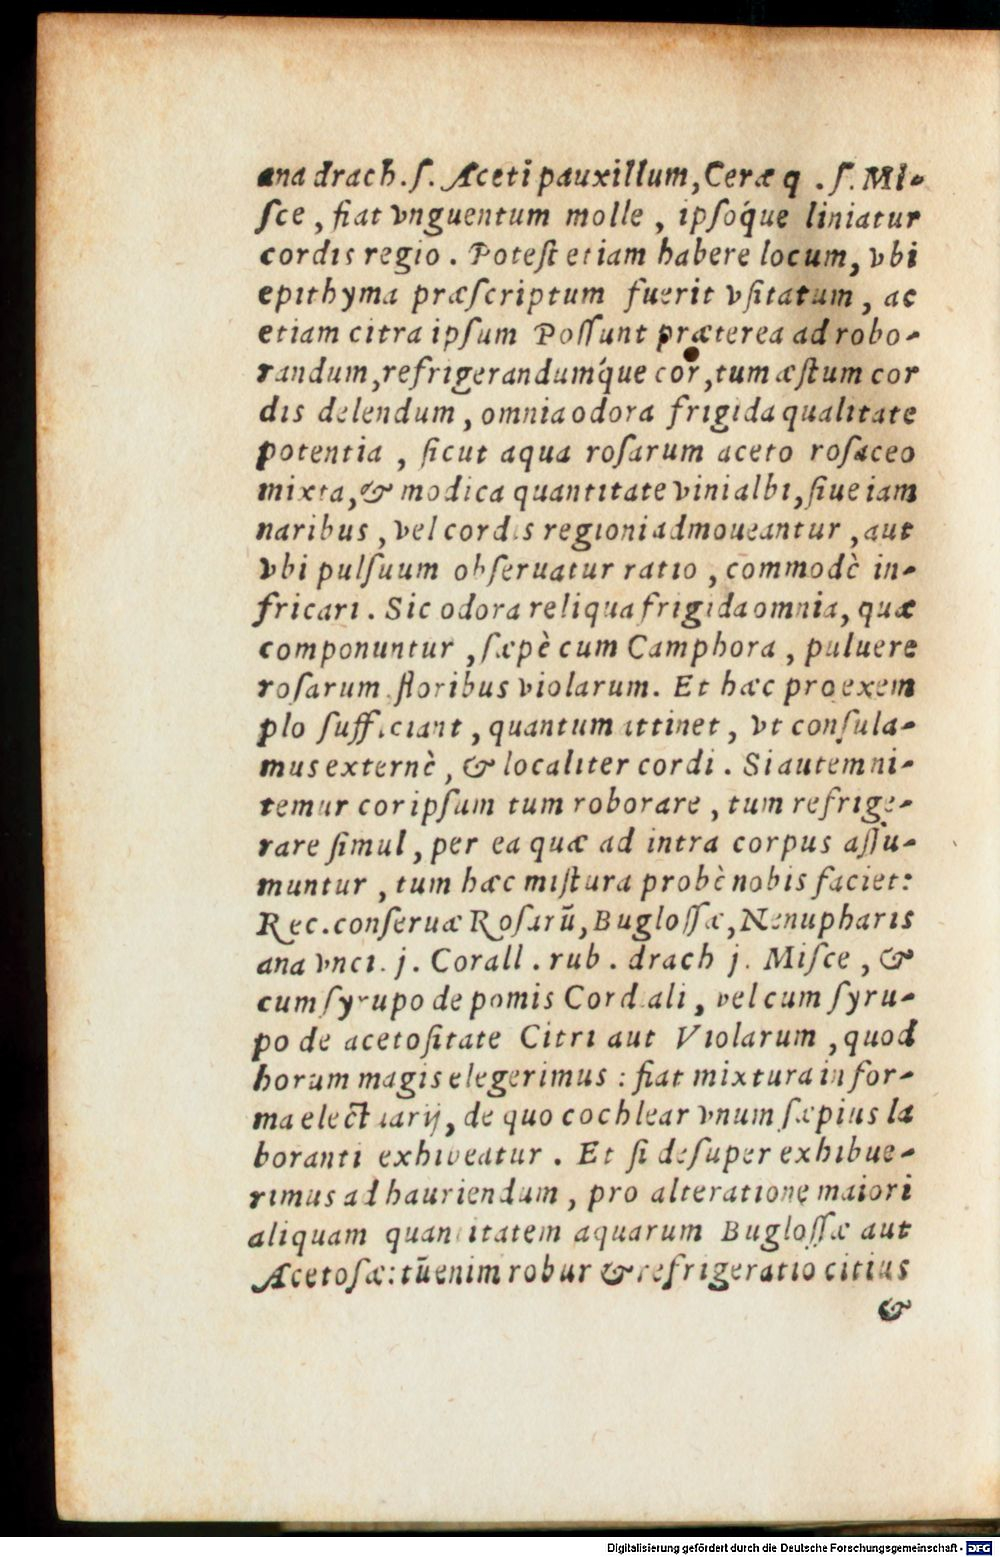 ana drach. ſ. Aceti pauxillum, Ceræ q . ſ. Mi-
ſce , fiat vnguentum molle , ipſóque liniatur
cordis regio . Poteſt etiam habere locum, vbi
epithyma præſcriptum fuerit vſitatum , ac
etiam citra ipſum Poſſunt præterea ad robo-
randum, refrigerandumq́ue cor, tum æſtum cor
dis delendum , omnia odora frigida qualitate
potentia , ſicut aqua roſarum aceto roſaceo
mixta, & modica quantitate vini albi, ſiue iam
naribus , vel cordis regioni admoueantur , aut
vbi pulſuum obſeruatur ratio , commodè in-
fricari . Sic odora reliqua frigida omnia, quæ
componuntur , ſæpè cum Camphora , puluere
roſarum floribus violarum. Et hæc pro exem
plo ſufficiant , quantum attinet , vt conſula-
mus externè , & localiter cordi . Si autem ni-
temur cor ipſum tum roborare , tum refrige-
rare ſimul , per ea quæ ad intra corpus aſſu-
muntur , tum hæc miſtura probè nobis faciet:
Rec. conſeruæ Roſarū, Bugloſſæ, Nenupharis
ana vnci. j. Corall . rub . drach j. Miſce , &
cum ſyrupo de pomis Cordiali , vel cum ſyru-
po de acetoſitate Citri aut Violarum , quod
horum magis elegerimus : fiat mixtura in for-
ma electuarij, de quo cochlear vnum ſæpius la
boranti exhibeatur . Et ſi deſuper exhibue-
rimus ad hauriendum , pro alteratione maiori
aliquam quantitatem aquarum Bugloſſæ aut
Acetoſæ: tū enim robur & refrigeratio citius
&
Digitalisierung gefördert durch die Deutsche Forschungsgemeinschaft - DFG